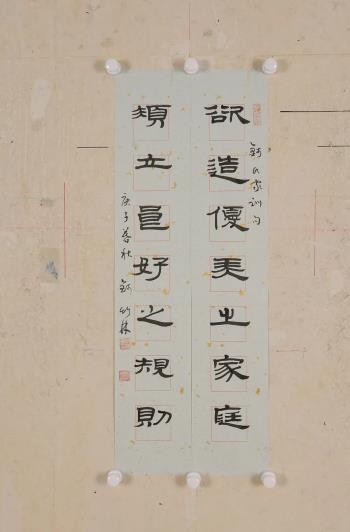 欲造優美之家庭
錢氏家訓句
須立良好之規則
庚子暮秋 錢竹林